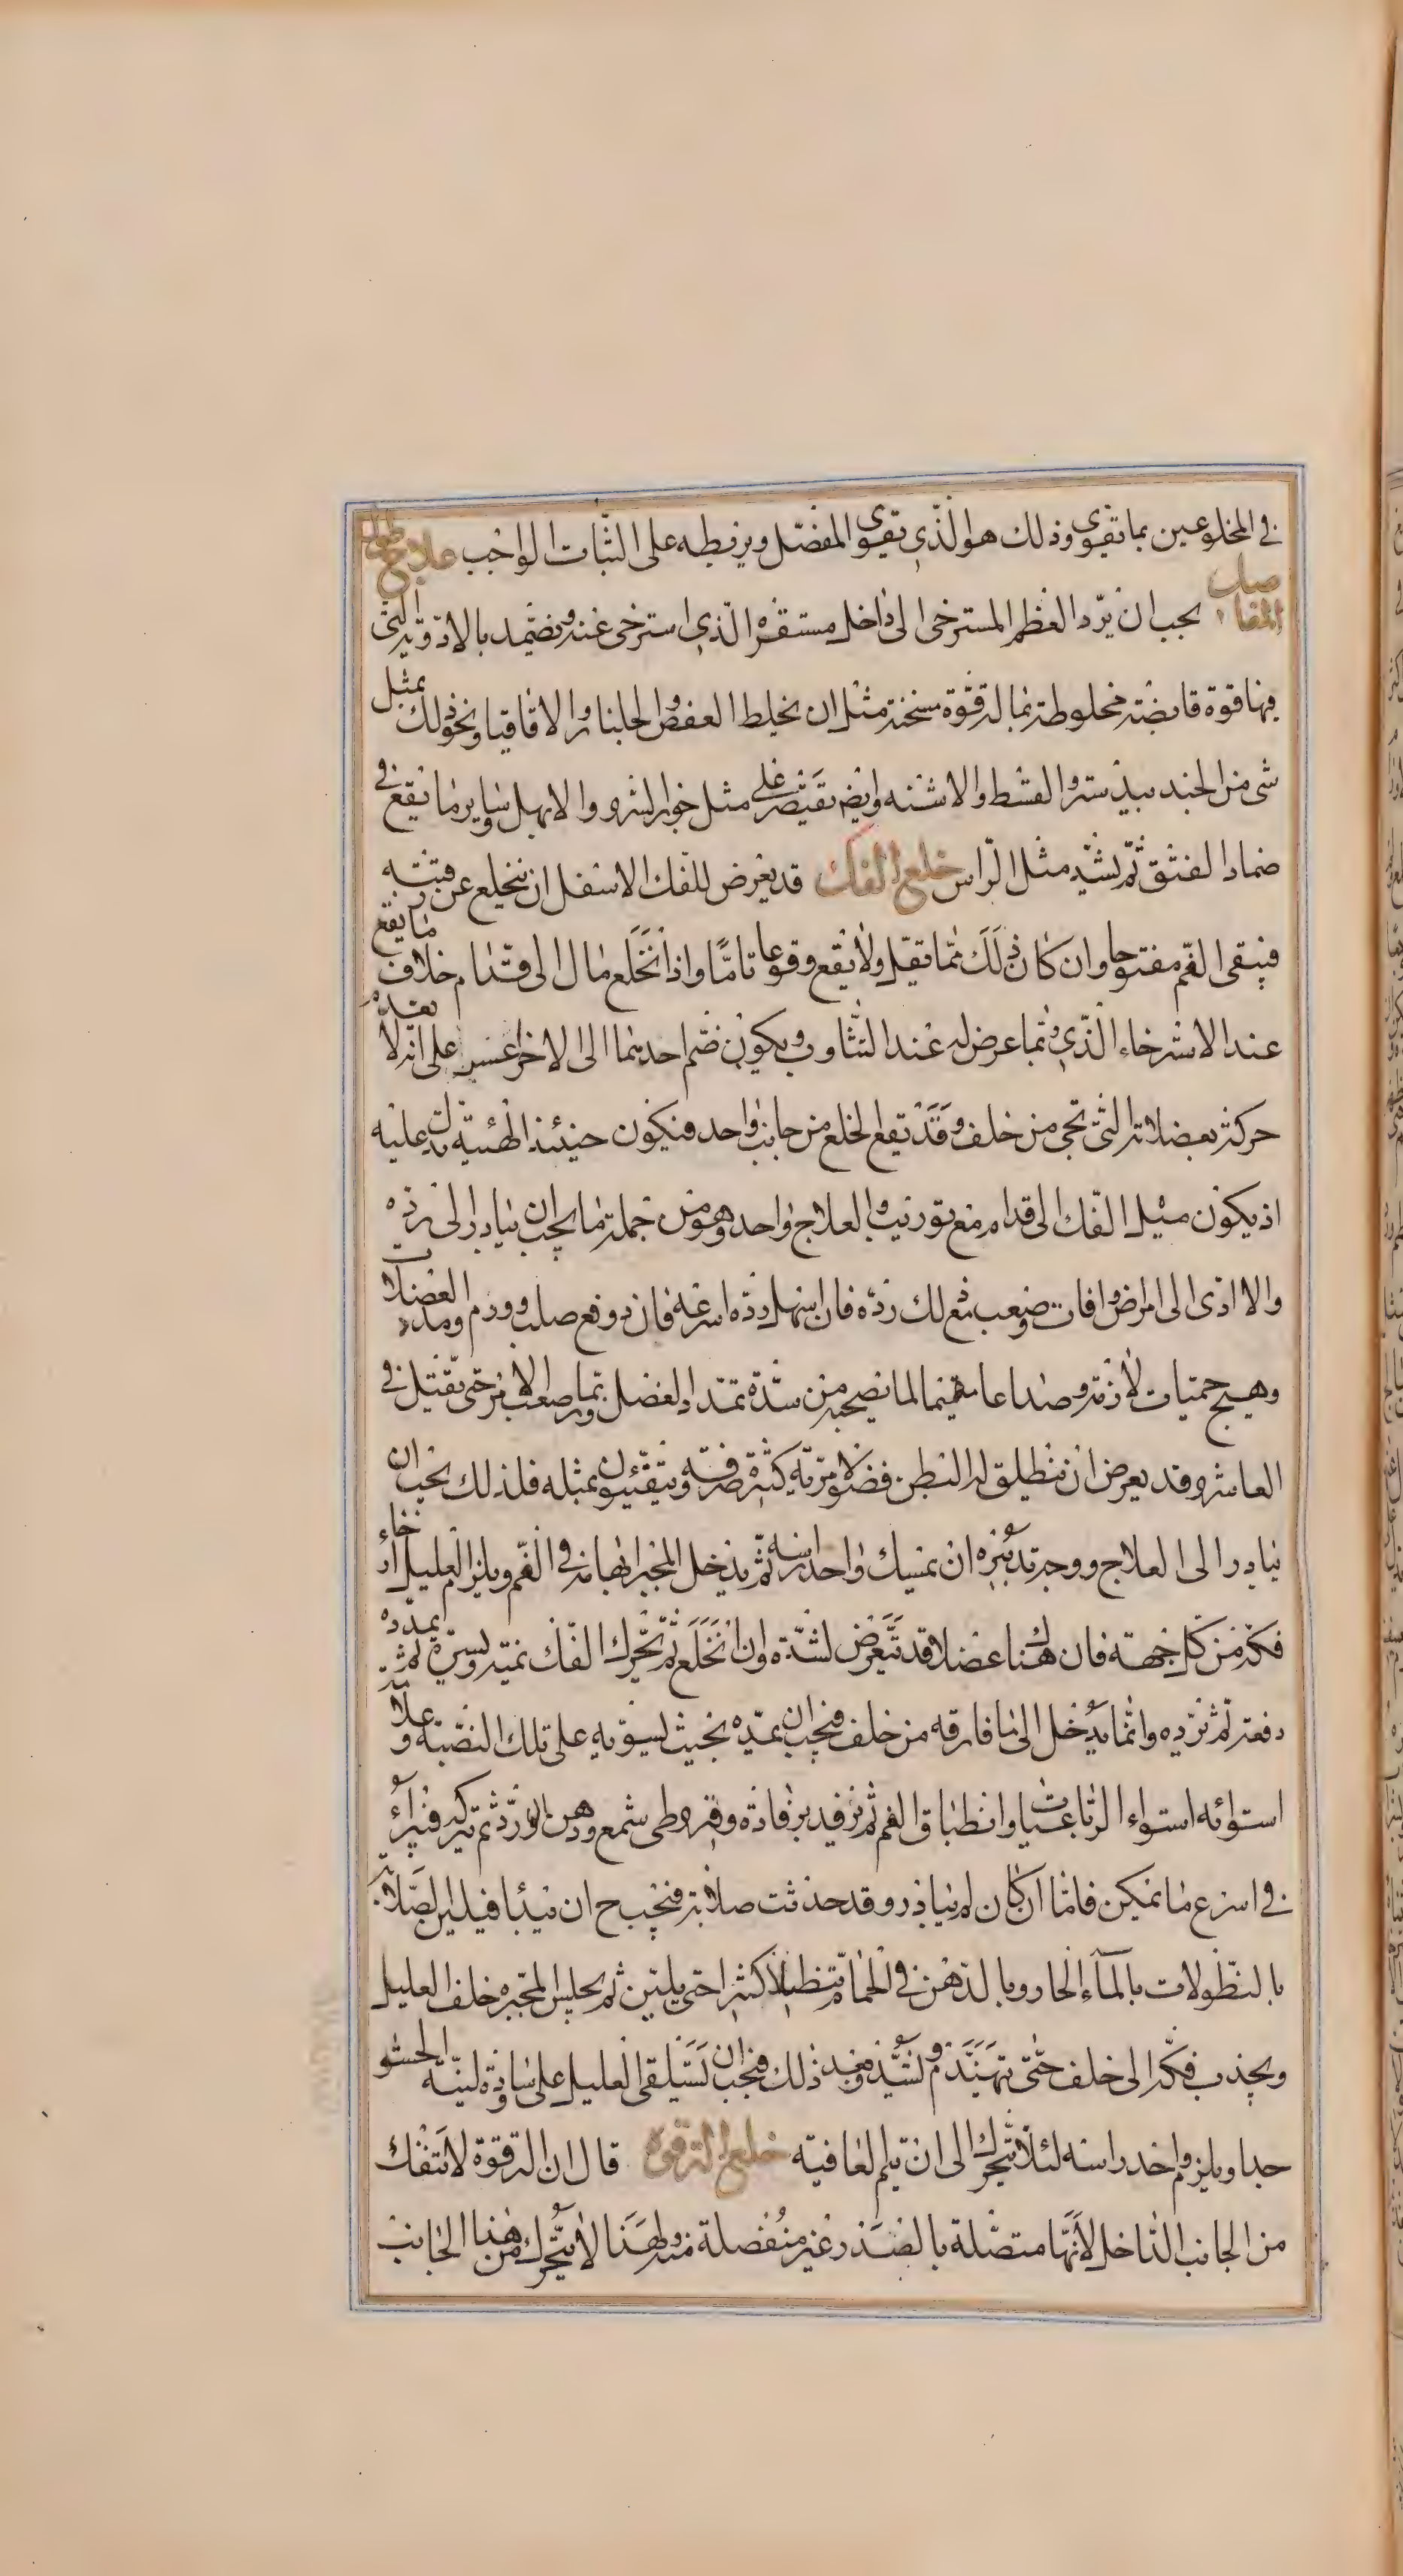 في المخلوعين بما تقوى وذلك هو الذي يقوى المفصل ويربطه على الثبات الواجب علاج طول
المفاصل يجب ان يرد العظم المسترخى الى داخل مستقره الذي استرخى عنه ويضمد بالادوية التى
فيها قوة قابضة مخلوطة بما له قوة مسخنة مثل ان يخلط العفص والجلنار والاقاقيا ونحو ذلك بمثل
شى من الجندبيدستر والقسط والاشنه وايضا يقتصر على مثل جوز السرو والابهل وساير ما يقع في
ضماد الفتق ثم يشد مثل الراس خلع الفك قد يعرض للفك الاسفل ان ينخلع عن رقبته
فيبقى الفم مفتوحا وان كان ذلك مما تقل ولا يقع وقوعا تاما واذا انخلع مال الى قدام خلاف ما يقع
عند الاسترخاء الذي ربما عرض له عند التثاوب ويكون ضم احدهما الى الاخر عسر على انه لا بعده
حركة بعضلاته التى تجى من خلف وقد تقع الخلع من جانب واحد فيكون حينئذ الهيئة تدل عليه
اذ يكون ميل الفك الى قدام مع توريب والعلاج واحد وهو من جملة ما يجب ان يبادر الى رده
والا ادى الى امراض وافات وصعب مع ذلك رده فان اسهل رده اسرعه فان دوفع صلب وورم ومدد العضلات
وهيج حميات لازمة وصداعا مقيما لما تصحبه من شدة تمدد العضل وربما صعب الامر حتى يقتل في
العاشر وقد يعرض ان ينطلق له البطن فضولا مرية كثيرة صرفة ويتقيئون بمثله فلذلك يجب ان
يبادر الى العلاج ووجه تدبيره ان يمسك واحد راسه ثم يدخل المجبر ابهامه في الفم ويلزم العليل ارخاء
فكه من كل جهة فان هناك عضلا قد تعرض لشدة وان انخلع ثم تحرك الفك يمنة ويسرة ثم يمدده
دفعة ثم يرده وانما يدخل الى ما فارقه من خلف فيجب ان يمده بحيث يسويه على تلك النصبة وعلامة
استوائه استواء الرباعيات وانطباق الفم ثم يرفد برفادة وقيروطى شمع ودهن الورد ثم يتركه فيبرأ
في اسرع ما يمكن فاما ان كان لم يبادر وقد حدثت صلابة فيجب ح ان يبدا فيلين الصلابة
بالنطولات بالماء الحار وبالدهن في الحمام تنطيلا كثيرا حتى يلين ثم يجلس المجبر خلف العليل
ويجذب فكه الى خلف حتى تهندم ويشد وبعد ذلك فيجب ان يستلقى العليل على وسادة لينة الحشو
جدا ويلزم واحد راسه لئلا يتحرك الى ان يتم العافيه خلع الترقوة قال ان الترقوة لا تنفك
من الجانب الداخل لانها متصلة بالصدر غير منفصلة منه ولهذا لا يتحرك من هذا الجانب